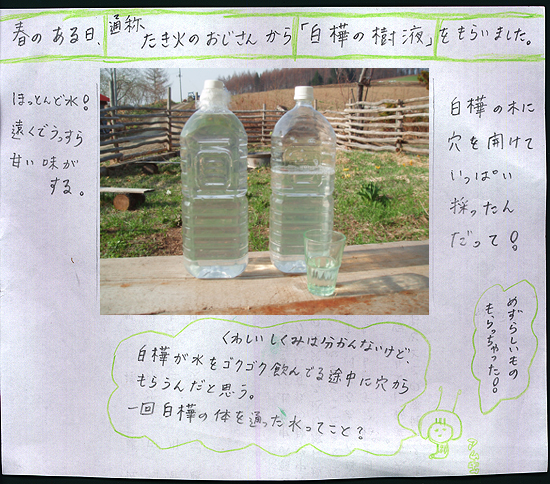 春のある日、通称 たき火のおじさんから「白樺の樹液」をもらいました。
ほっとんど水!
遠くでうっすら
甘い味が
する。
白樺の木に
穴を開けて
いっぱい
採ったん
だって!
めずらしいもの
もらっちゃった!!
くわしいしくみは分かんないけど、
白樺が水をゴクゴク飲んでる途中に穴から
もらうんだと思う。
一回白樺の体を通った水ってこと?